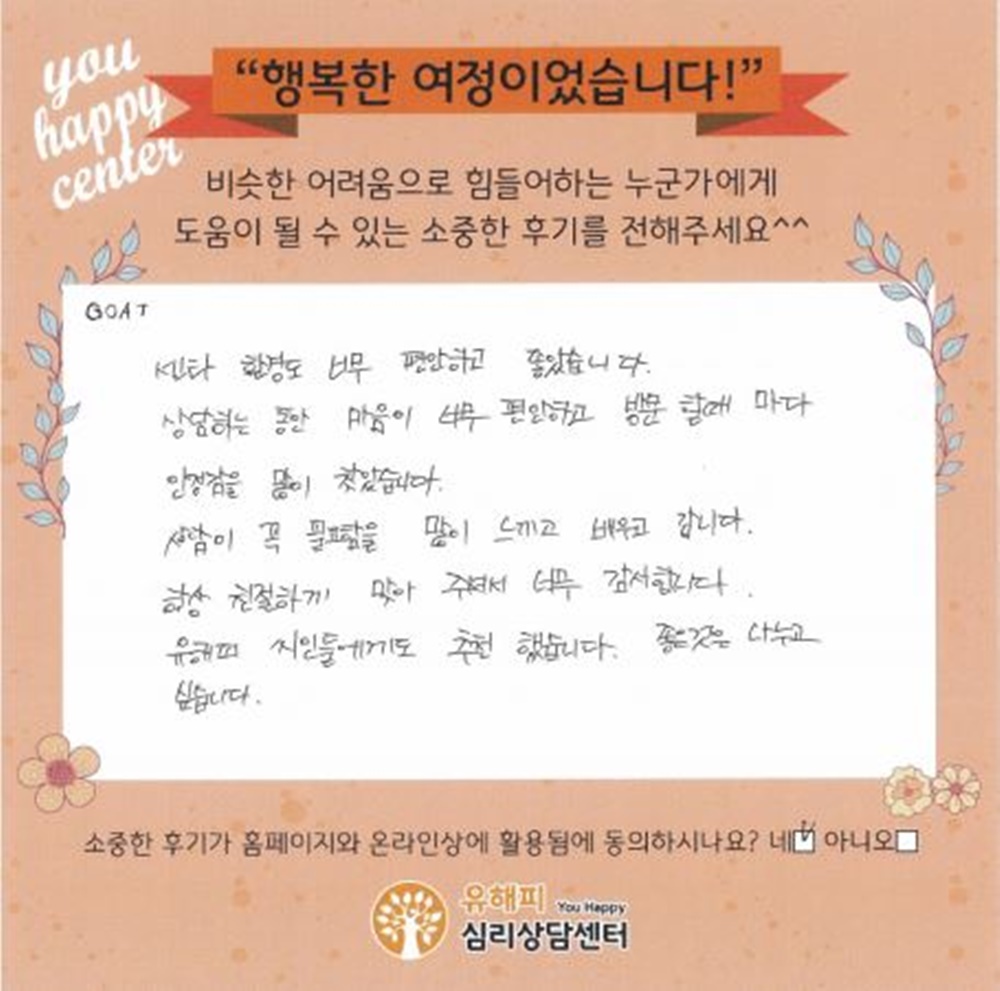 you
happy
center
“행복한 여정이었습니다!”
비슷한 어려움으로 힘들어하는 누군가에게
도움이 될 수 있는 소중한 후기를 전해주세요^^
GOAT
센타 환경도 너무 편안하고 좋았습니다.
상담하는 동안 마음이 너무 편안하고 방문 할때 마다
안정감을 많이 찾았습니다.
사람이 꼭 필요함을 많이 느끼고 배우고 갑니다.
항상 친절하게 맞아 주셔서 너무 감사합니다.
유해피 지인들에게도 추천 했습니다. 좋은것은 나누고
싶습니다.
소중한 후기가 홈페이지와 온라인상에 활용됨에 동의하시나요? 네 아니오
유해피 You Happy
심리상담센터